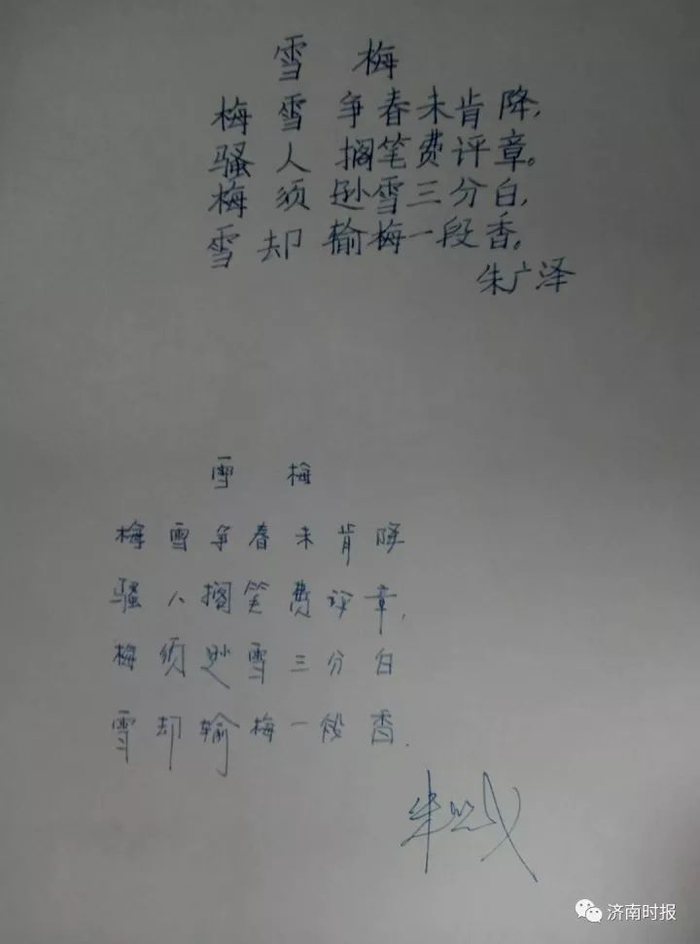 雪 梅
梅雪争春未肯降,
骚人搁笔费评章。
梅须逊雪三分白,
雪却输梅一段香。
朱广泽
雪 梅
梅雪争春未肯降
骚人搁笔费评章,
梅须逊雪三分白
雪却输梅一段香.
济南时报